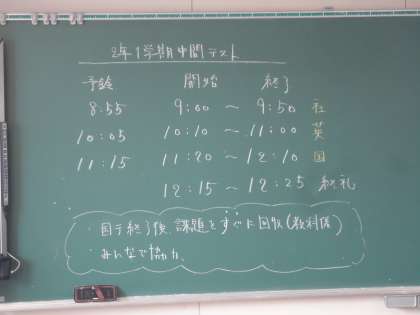 2年1学期中間テスト
予鈴 開始 終了
8:55 9:00 ~ 9:50 社
10:05 10:10 ~ 11:00 英
11:15 11:20 ~ 12:10 国
12:15 ~ 12:25 終礼
・国テ終了後、課題をすぐに回収(教科係)
みんなで協力。